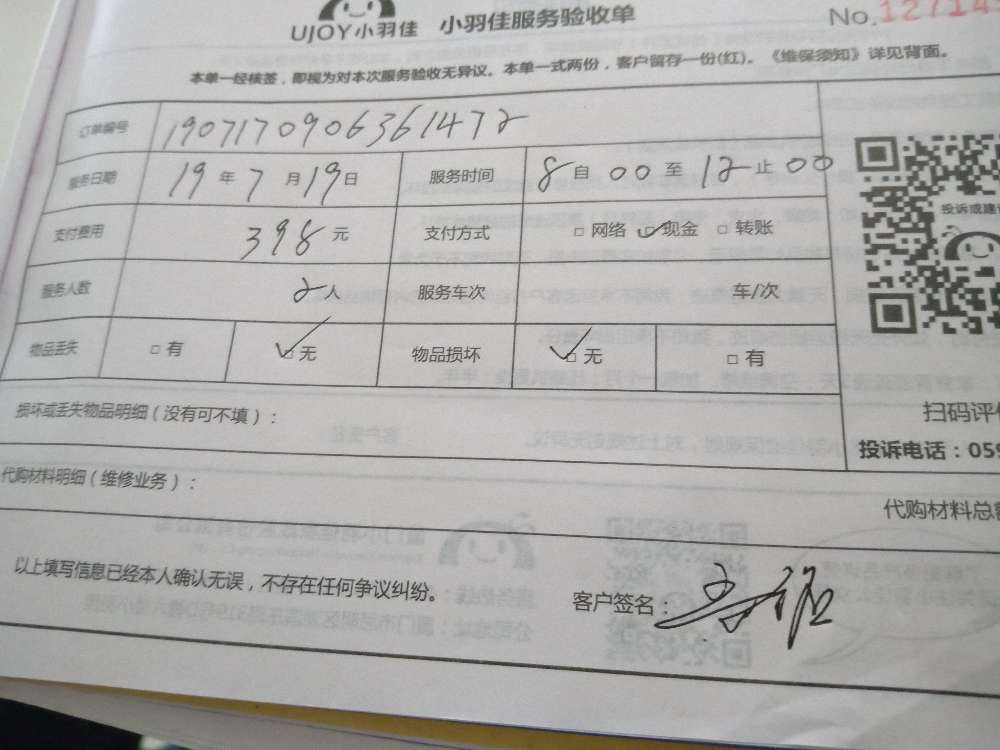 UJOY小羽佳 小羽佳服务验收单 No.12714
本单一经核签，即视为对本次服务验收无异议。本单一式两份，客户留存一份(红)。《维保须知》详见背面。
订单编号 1907170906361472
服务日期 19年7月19日 服务时间 8自00至12止00
支付费用 398元 支付方式 □网络 ☑现金 □转账
服务人数 2人 服务车次 车/次
物品丢失 □有 ☑无 物品损坏 ☑无 □有
投诉或建
损坏或丢失物品明细（没有可不填）：
扫码评
投诉电话：059
代购材料明细（维修业务）：
代购材料总
以上填写信息已经本人确认无误，不存在任何争议纠纷。 客户签名：